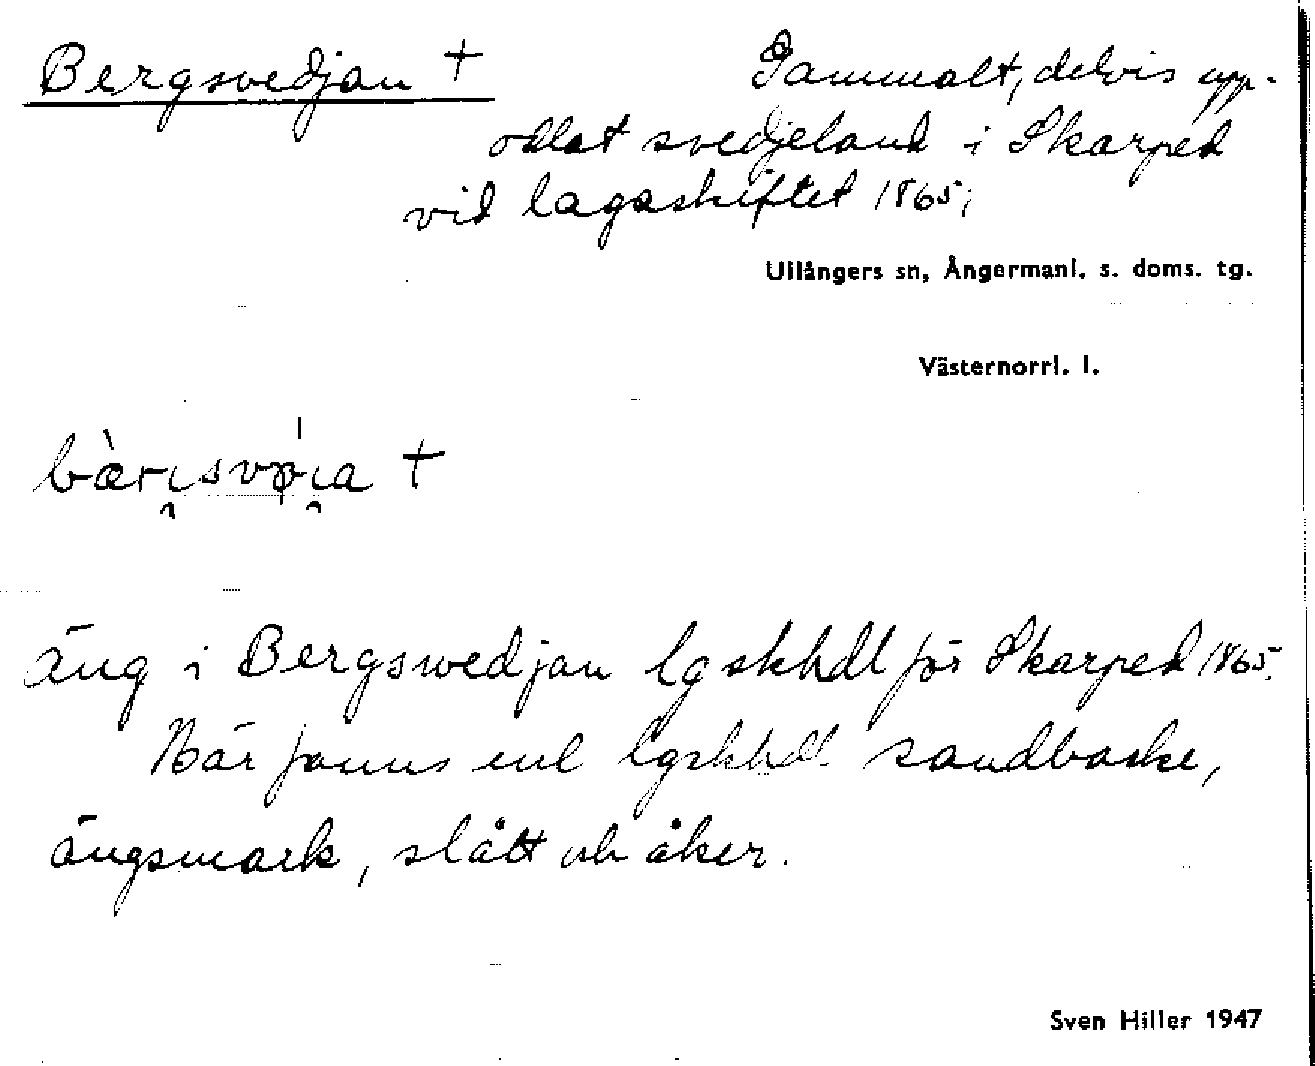 Bergsvedjan †
Gammalt, delvis upp-
odlat svedjeland i Skarped
vid lagaskiftet 1865;
Ullångers sn, Ångermanl. s. doms. tg.
Västernorrl. l.
†
äng i Bergswedjan lgskhdl för Skarped 1865.
Här fanns enl lgskhdl. sandbacke,
ängsmark, slått och åker.
Sven Hiller 1947